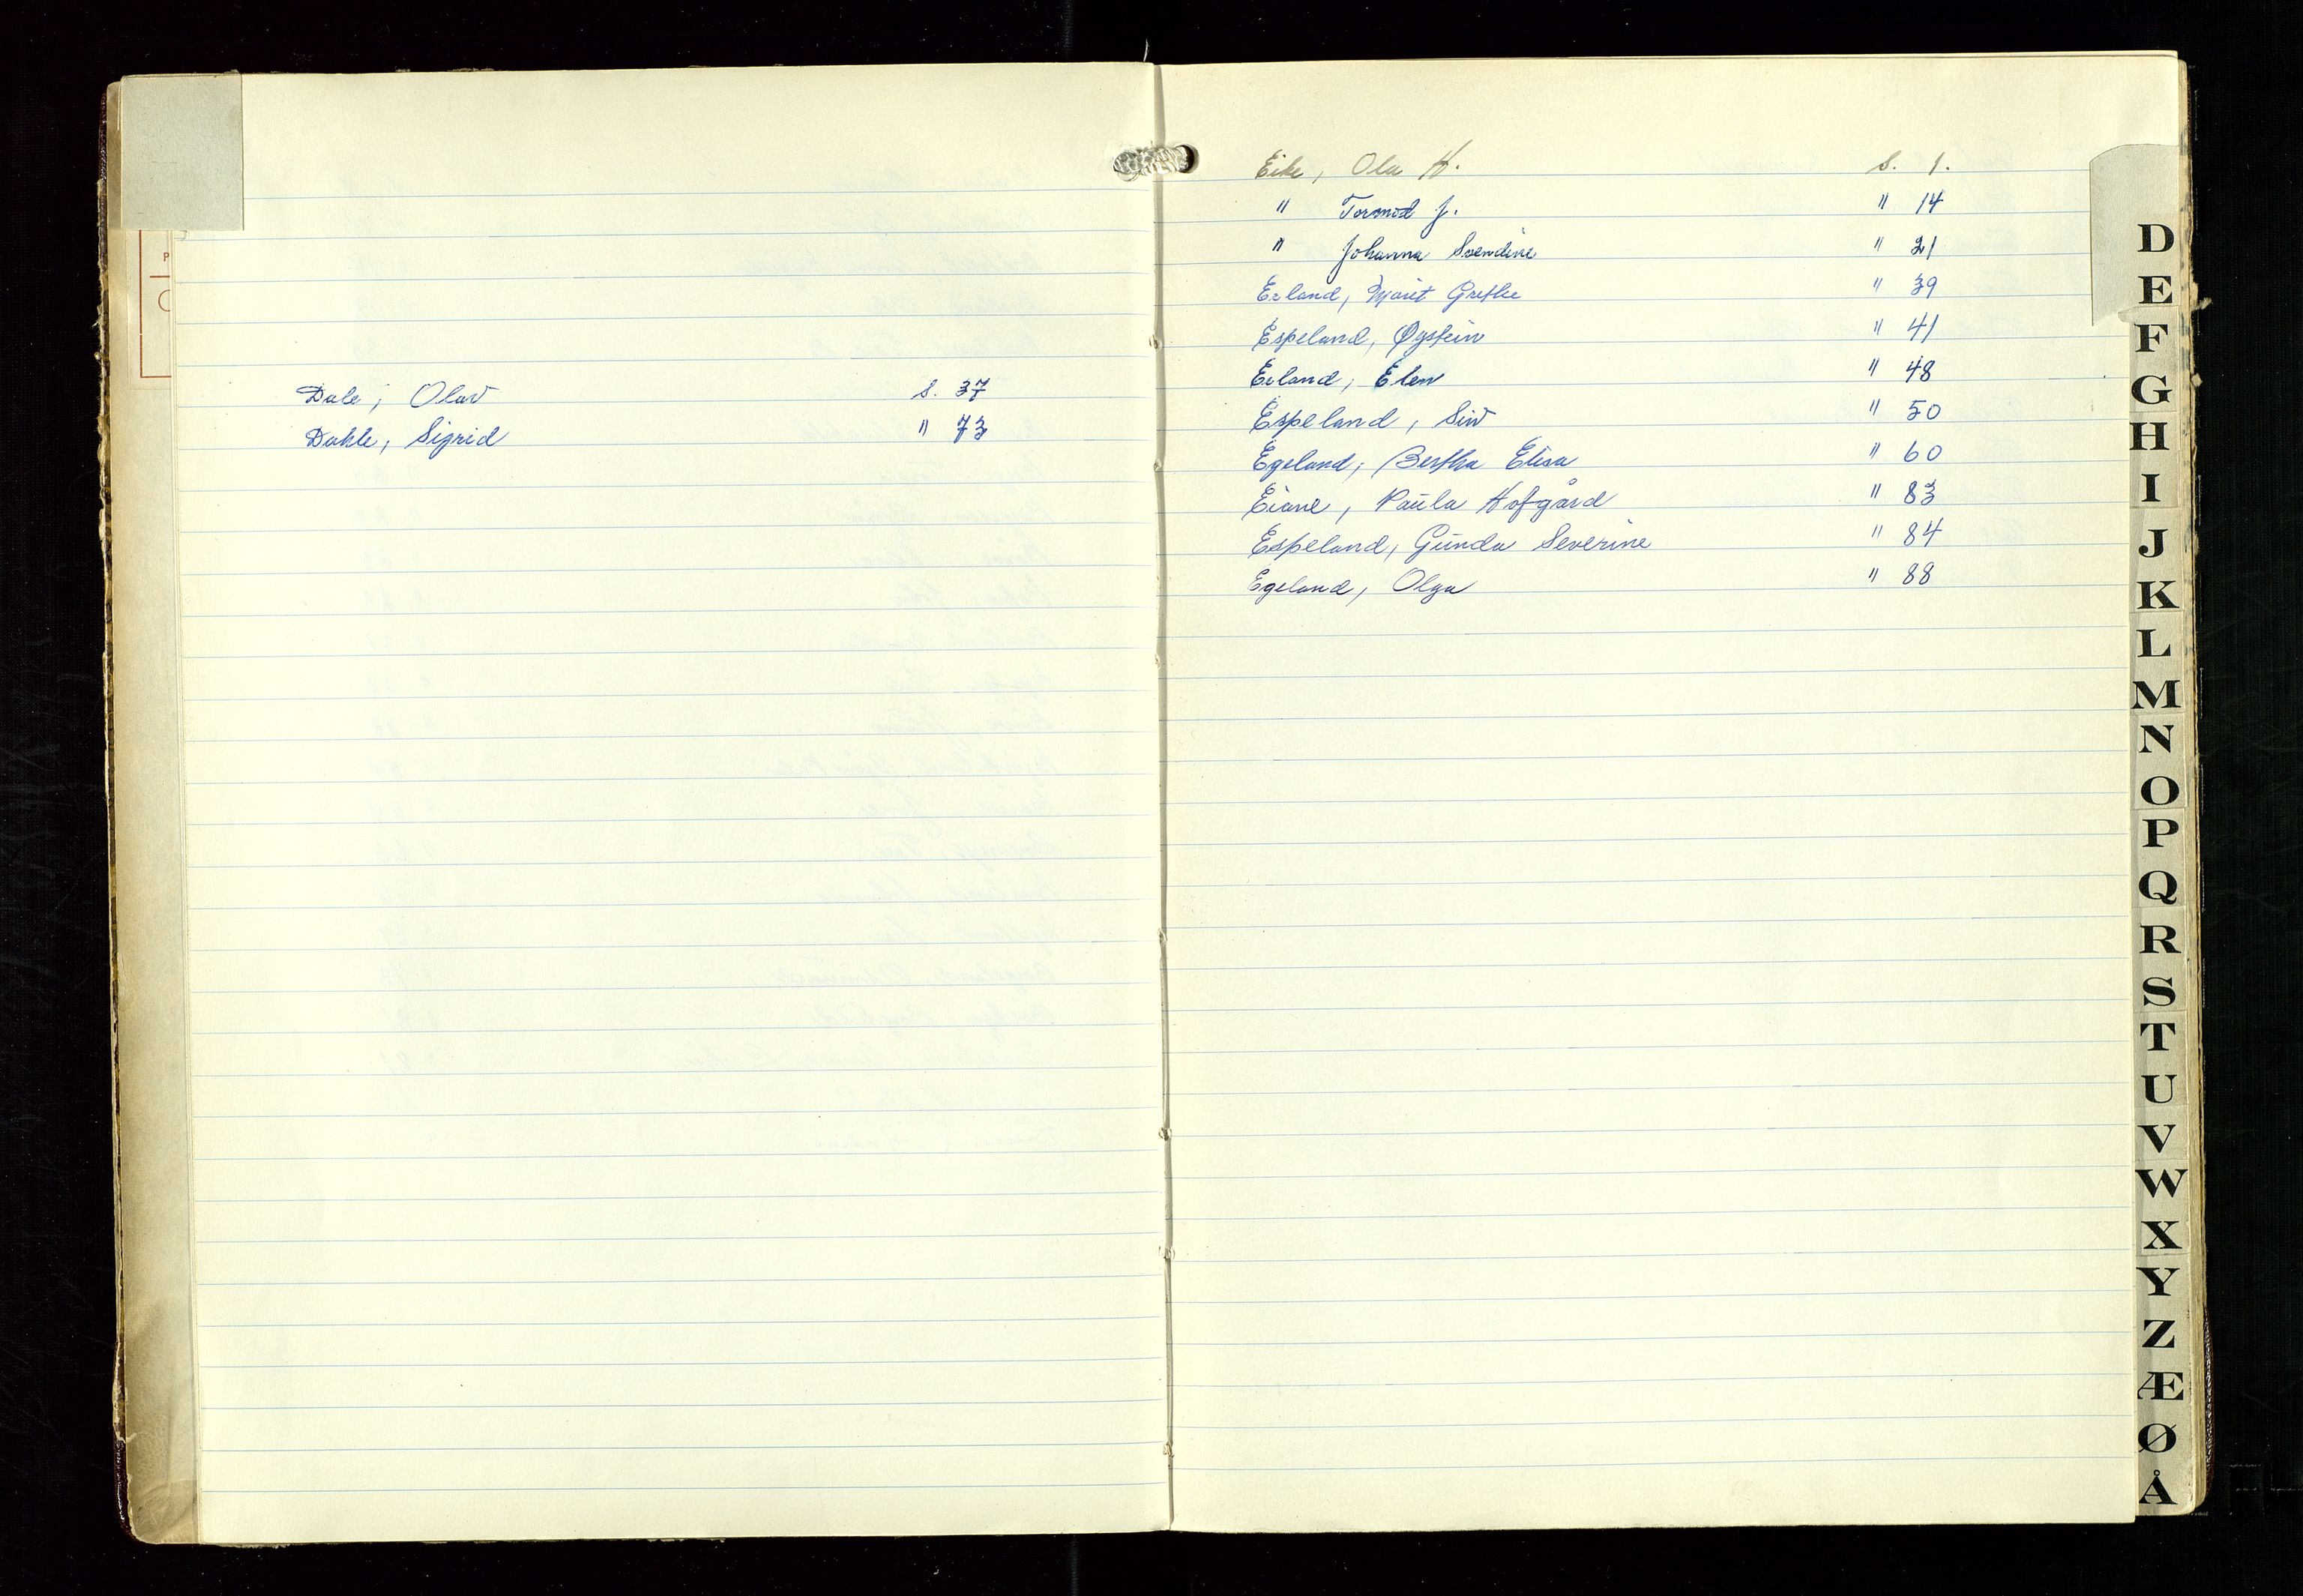 Dale, Olav s. 37
Dahle, Sigrid " 73
Eike, Ola H. s. 1.
" Tormod J. " 14
" Johanna Svendine " 21
Erland, Marit Grethe " 39
Espeland, Øystein " 41
Erland, Elen " 48
Espeland, Siv " 50
Egeland, Bertha Elisa " 60
Eiane, Paula Hofgård " 83
Espeland, Gunda Severine " 84
Egeland, Olga " 88
D
E
F
G
H
I
J
K
L
M
N
O
P
Q
R
S
T
U
V
W
X
Y
Z
Æ
Ø
Å